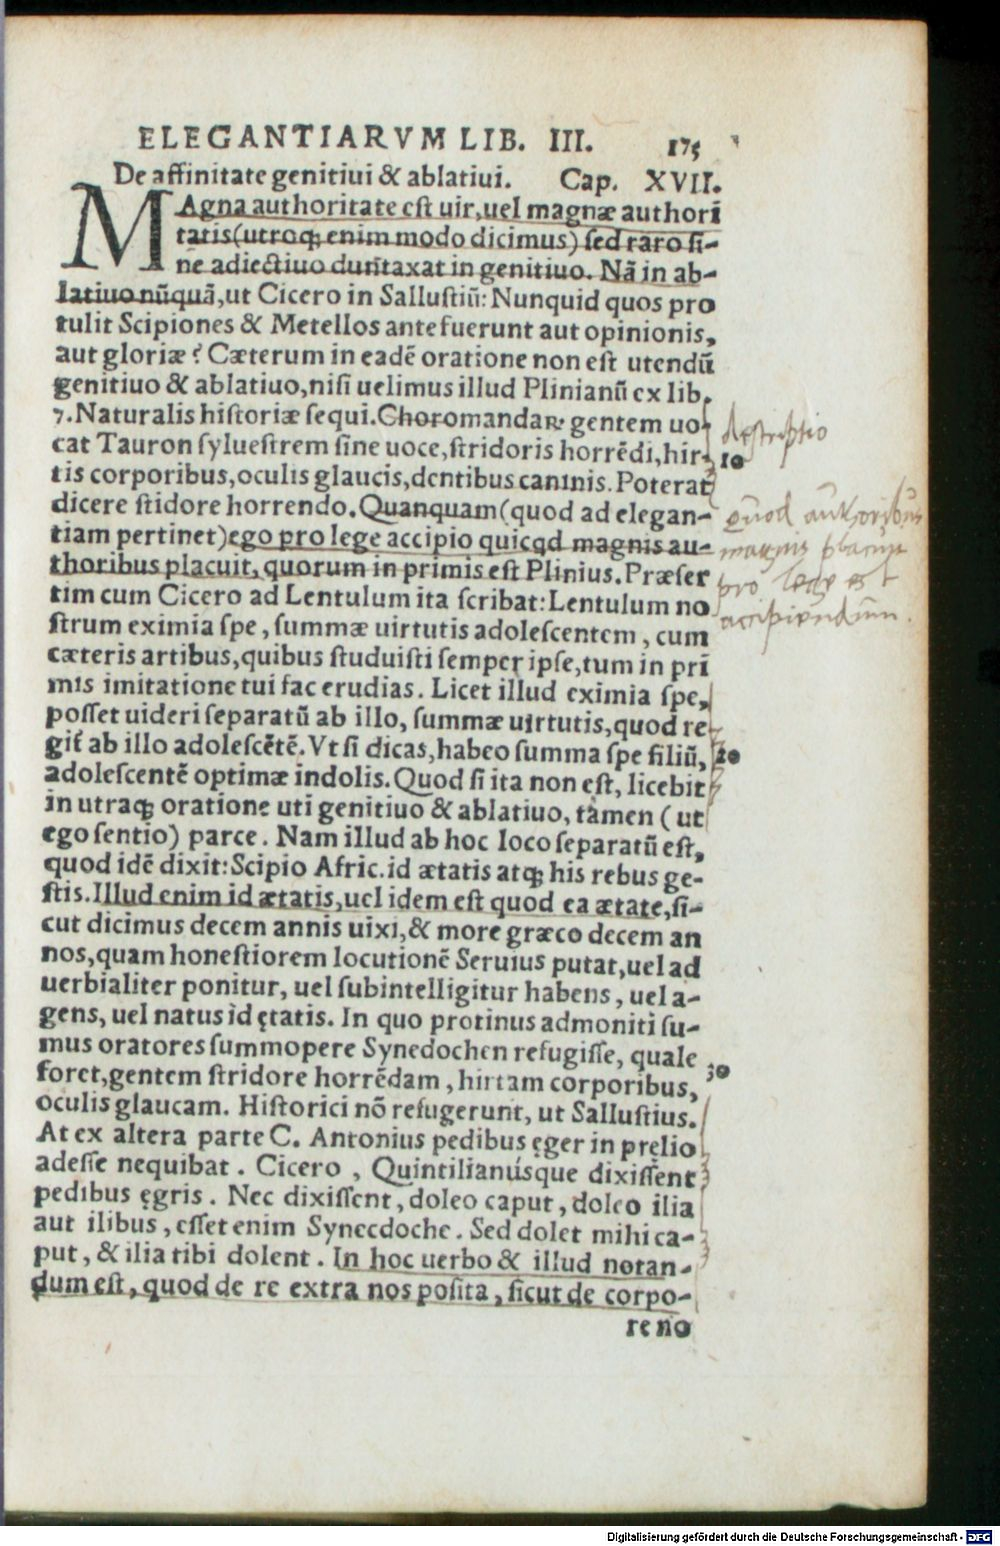 ELEGANTIARVM LIB. III. 175
De affinitate genitiui & ablatiui. Cap. XVII.
MAgna authoritate est uir, uel magnæ authori
tatis (utroq; enim modo dicimus) sed raro si-
ne adiectiuo duntaxat in genitiuo. Nã in ab-
latiuo nũquã, ut Cicero in Sallustiũ: Nunquid quos pro
tulit Scipiones & Metellos ante fuerunt aut opinionis,
aut gloriæ? Cæterum in eadẽ oratione non est utendũ
genitiuo & ablatiuo, nisi uelimus illud Plinianũ ex lib.
7. Naturalis historiæ sequi. Choromandaꝝ gentem uo-
cat Tauron syluestrem sine uoce, stridoris horrẽdi, hir-
tis corporibus, oculis glaucis, dentibus caninis. Poterat
dicere stidore horrendo. Quanquam (quod ad elegan-
tiam pertinet) ego pro lege accipio quicqd magnis au-
thoribus placuit, quorum in primis est Plinius. Præser
tim cum Cicero ad Lentulum ita scribat: Lentulum no
strum eximia spe, summæ uirtutis adolescentem, cum
cæteris artibus, quibus studuisti semper ipse, tum in pri
mis imitatione tui fac erudias. Licet illud eximia spe,
posset uideri separatũ ab illo, summæ uirtutis, quod re
git ab illo adolescẽtẽ. Vt si dicas, habeo summa spe filiũ,
adolescentẽ optimæ indolis. Quod si ita non est, licebit
in utraq; oratione uti genitiuo & ablatiuo, tamen (ut
ego sentio) parce. Nam illud ab hoc loco separatũ est,
quod idẽ dixit: Scipio Afric. id ætatis atq; his rebus ge-
stis. Illud enim id ætatis, uel idem est quod ea ætate, si-
cut dicimus decem annis uixi, & more græco decem an
nos, quam honestiorem locutionẽ Seruius putat, uel ad
uerbialiter ponitur, uel subintelligitur habens, uel a-
gens, uel natus id ętatis. In quo protinus admoniti su-
mus oratores summopere Synedochen refugisse, quale
foret, gentem stridore horrẽdam, hirtam corporibus,
oculis glaucam. Historici nõ refugerunt, ut Sallustius.
At ex altera parte C. Antonius pedibus ęger in pręlio
adesse nequibat. Cicero, Quintilianúsque dixissent
pedibus ęgris. Nec dixissent, doleo caput, doleo ilia
aut ilibus, esset enim Synecdoche. Sed dolet mihi ca-
put, & ilia tibi dolent. In hoc uerbo & illud notan-
dum est, quod de re extra nos posita, sicut de corpo-
re no
descriptio
10
quod authoribus
magnis placuit
pro lege est
accipiendum.
20
30
Digitalisierung gefördert durch die Deutsche Forschungsgemeinschaft - DFG